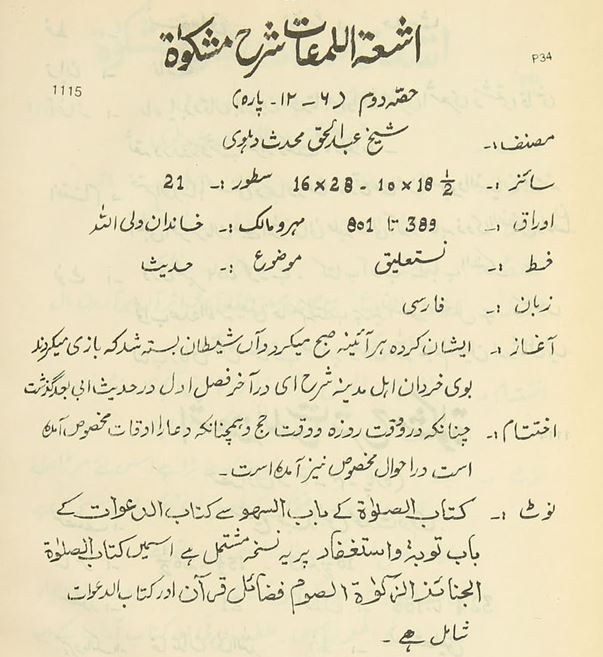 اشعۃ اللمعات شرح مشکوٰۃ
P34
1115
حصّہ دوم (۶ - ۱۲ - پارہ)
مصنف :- شیخ عبدالحق محدث دہلوی
سائز :- 16 x 28 - 10 x 18 ½ سطور :- 21
اوراق :- 389 تا 801 مہر و مالک :- خاندان ولی اللہ
خط :- نستعلیق موضوع :- حدیث
زبان :- فارسی
آغاز :- ایشان کردہ ہر آئینہ صبح میکرد و آں شیطان بستہ شد کہ بازی میکردند
بوی خردان اہل مدینہ شرح ای در آخر فصل اول در حدیث ابی بعد گذشت
اختتام :- چنانکہ در وقت روزہ و وقت حج و ہمچنانکہ دعا را اوقات مخصوص آمدہ
است در احوال مخصوص نیز آمدہ است -
نوٹ :- کتاب الصلوٰۃ کے باب السہو سے کتاب الدعوات کے
باب توبۃ و استغفار پر یہ نسخہ مشتمل ہے اسمیں کتاب الصلوٰۃ
الجنائز الزکوٰۃ الصوم فضائل قرآن اور کتاب الدعوات
شامل ہے -